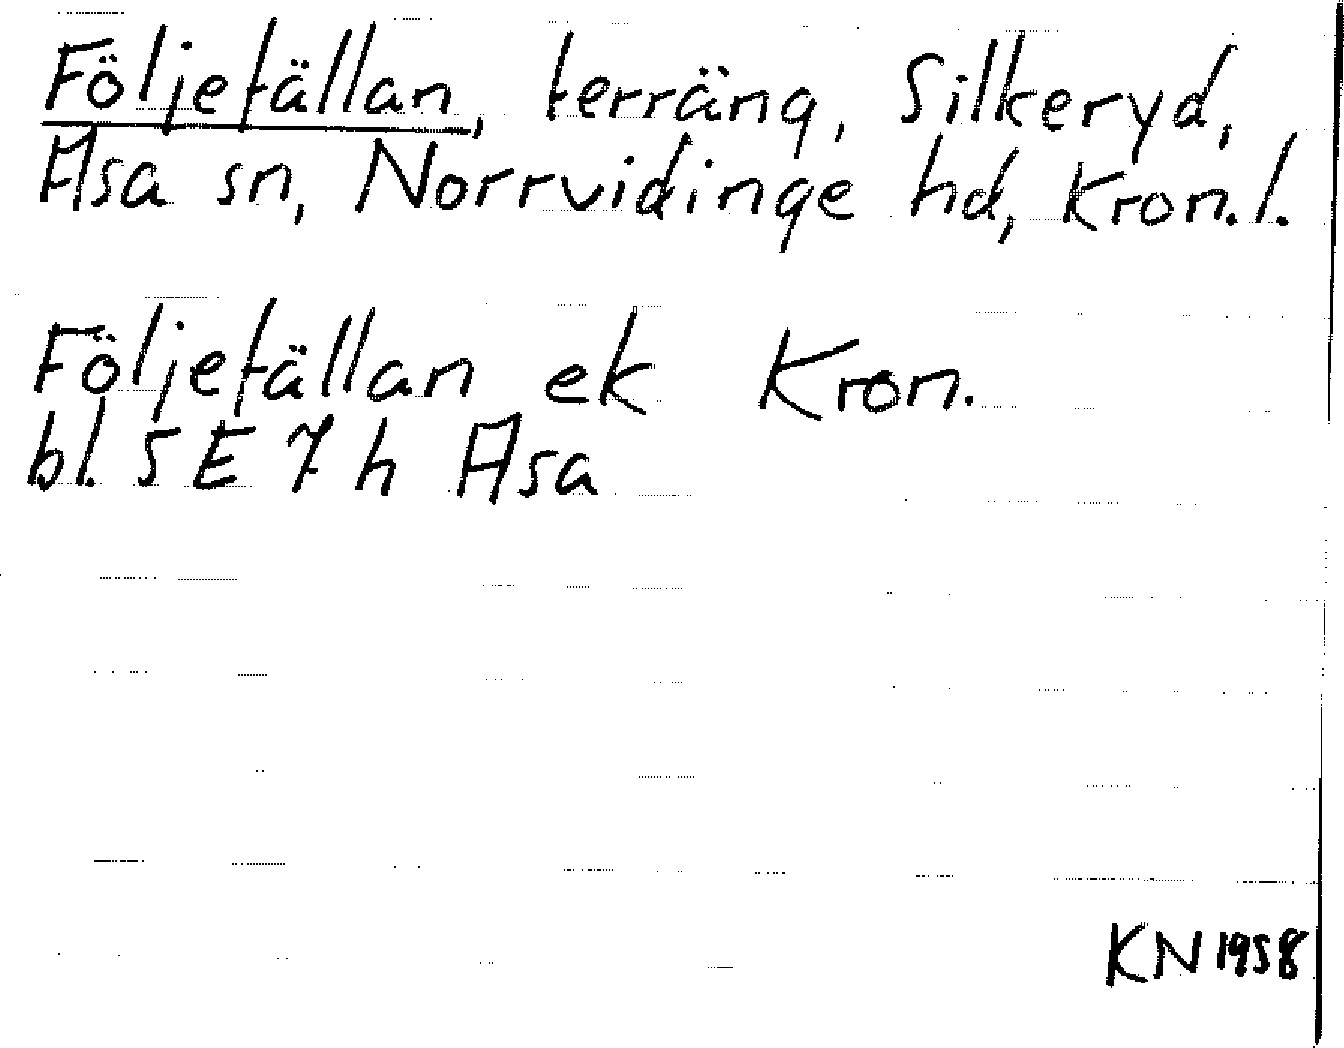 Följefällan, terräng, Silkeryd,
Asa sn, Norrvidinge hd, Kron.l.
Följefällan ek Kron.
bl. 5 E 7 h Asa
KN 1958